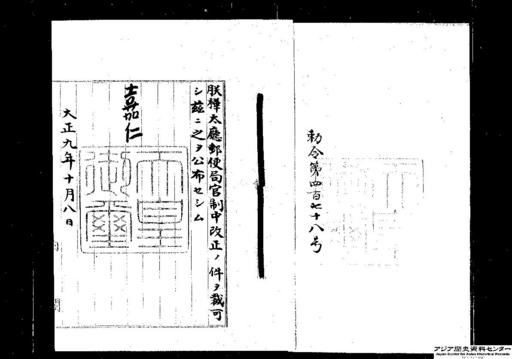 勅令第四百七十八号
朕樺太廳郵便局官制中改正ノ件ヲ裁可
シ茲ニ之ヲ公布セシム
嘉仁
天皇御璽
大正九年十月八日
アジア歴史資料センター
Japan Center for Asian Historical Records